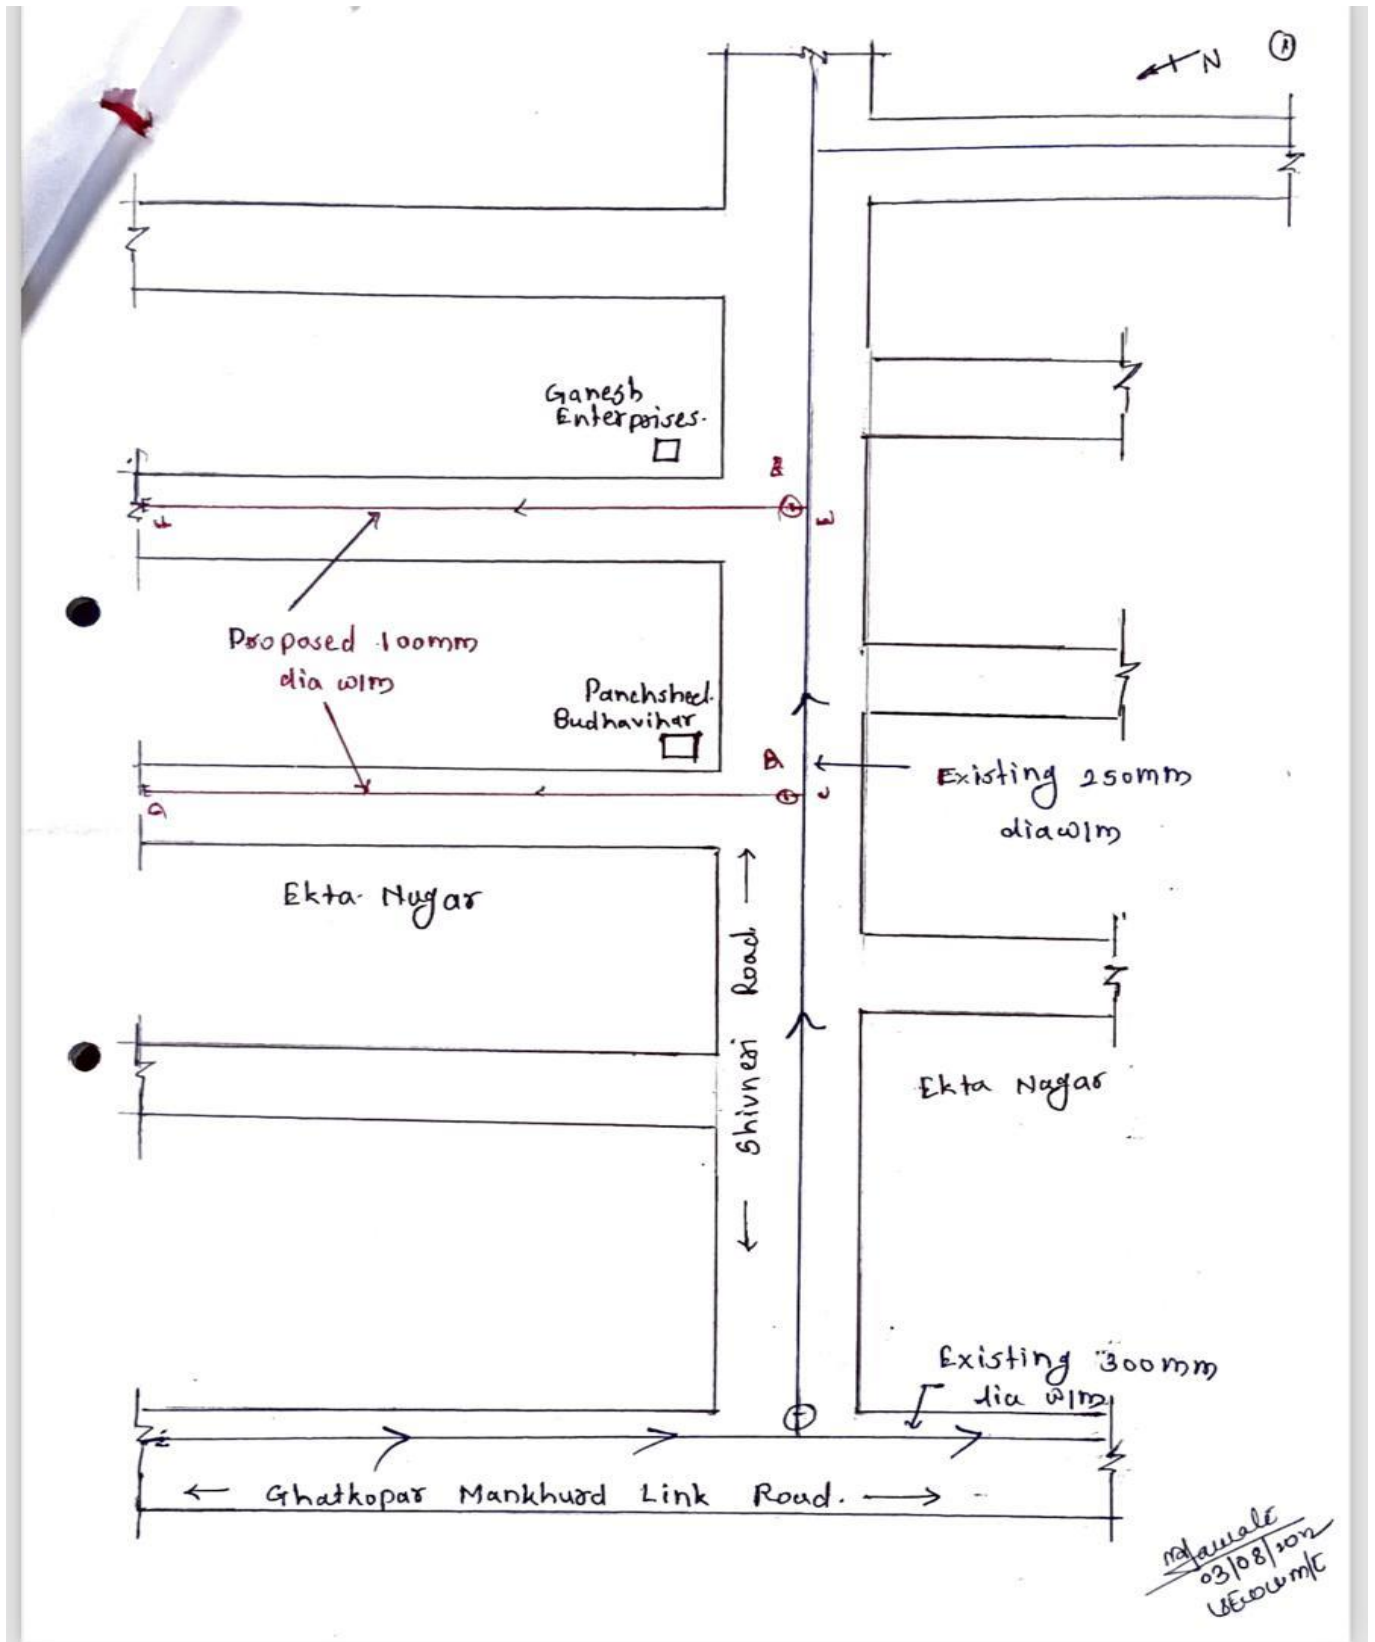 N
Ganesh
Enterprises.
E
F
Proposed 100mm
dia w/m
Panchsheel
Budhavihar
C
D
Existing 250mm
dia w/m
Ekta Nagar
Shivneri Road
Ekta Nagar
Existing 300mm
dia w/m
Ghatkopar Mankhurd Link Road.